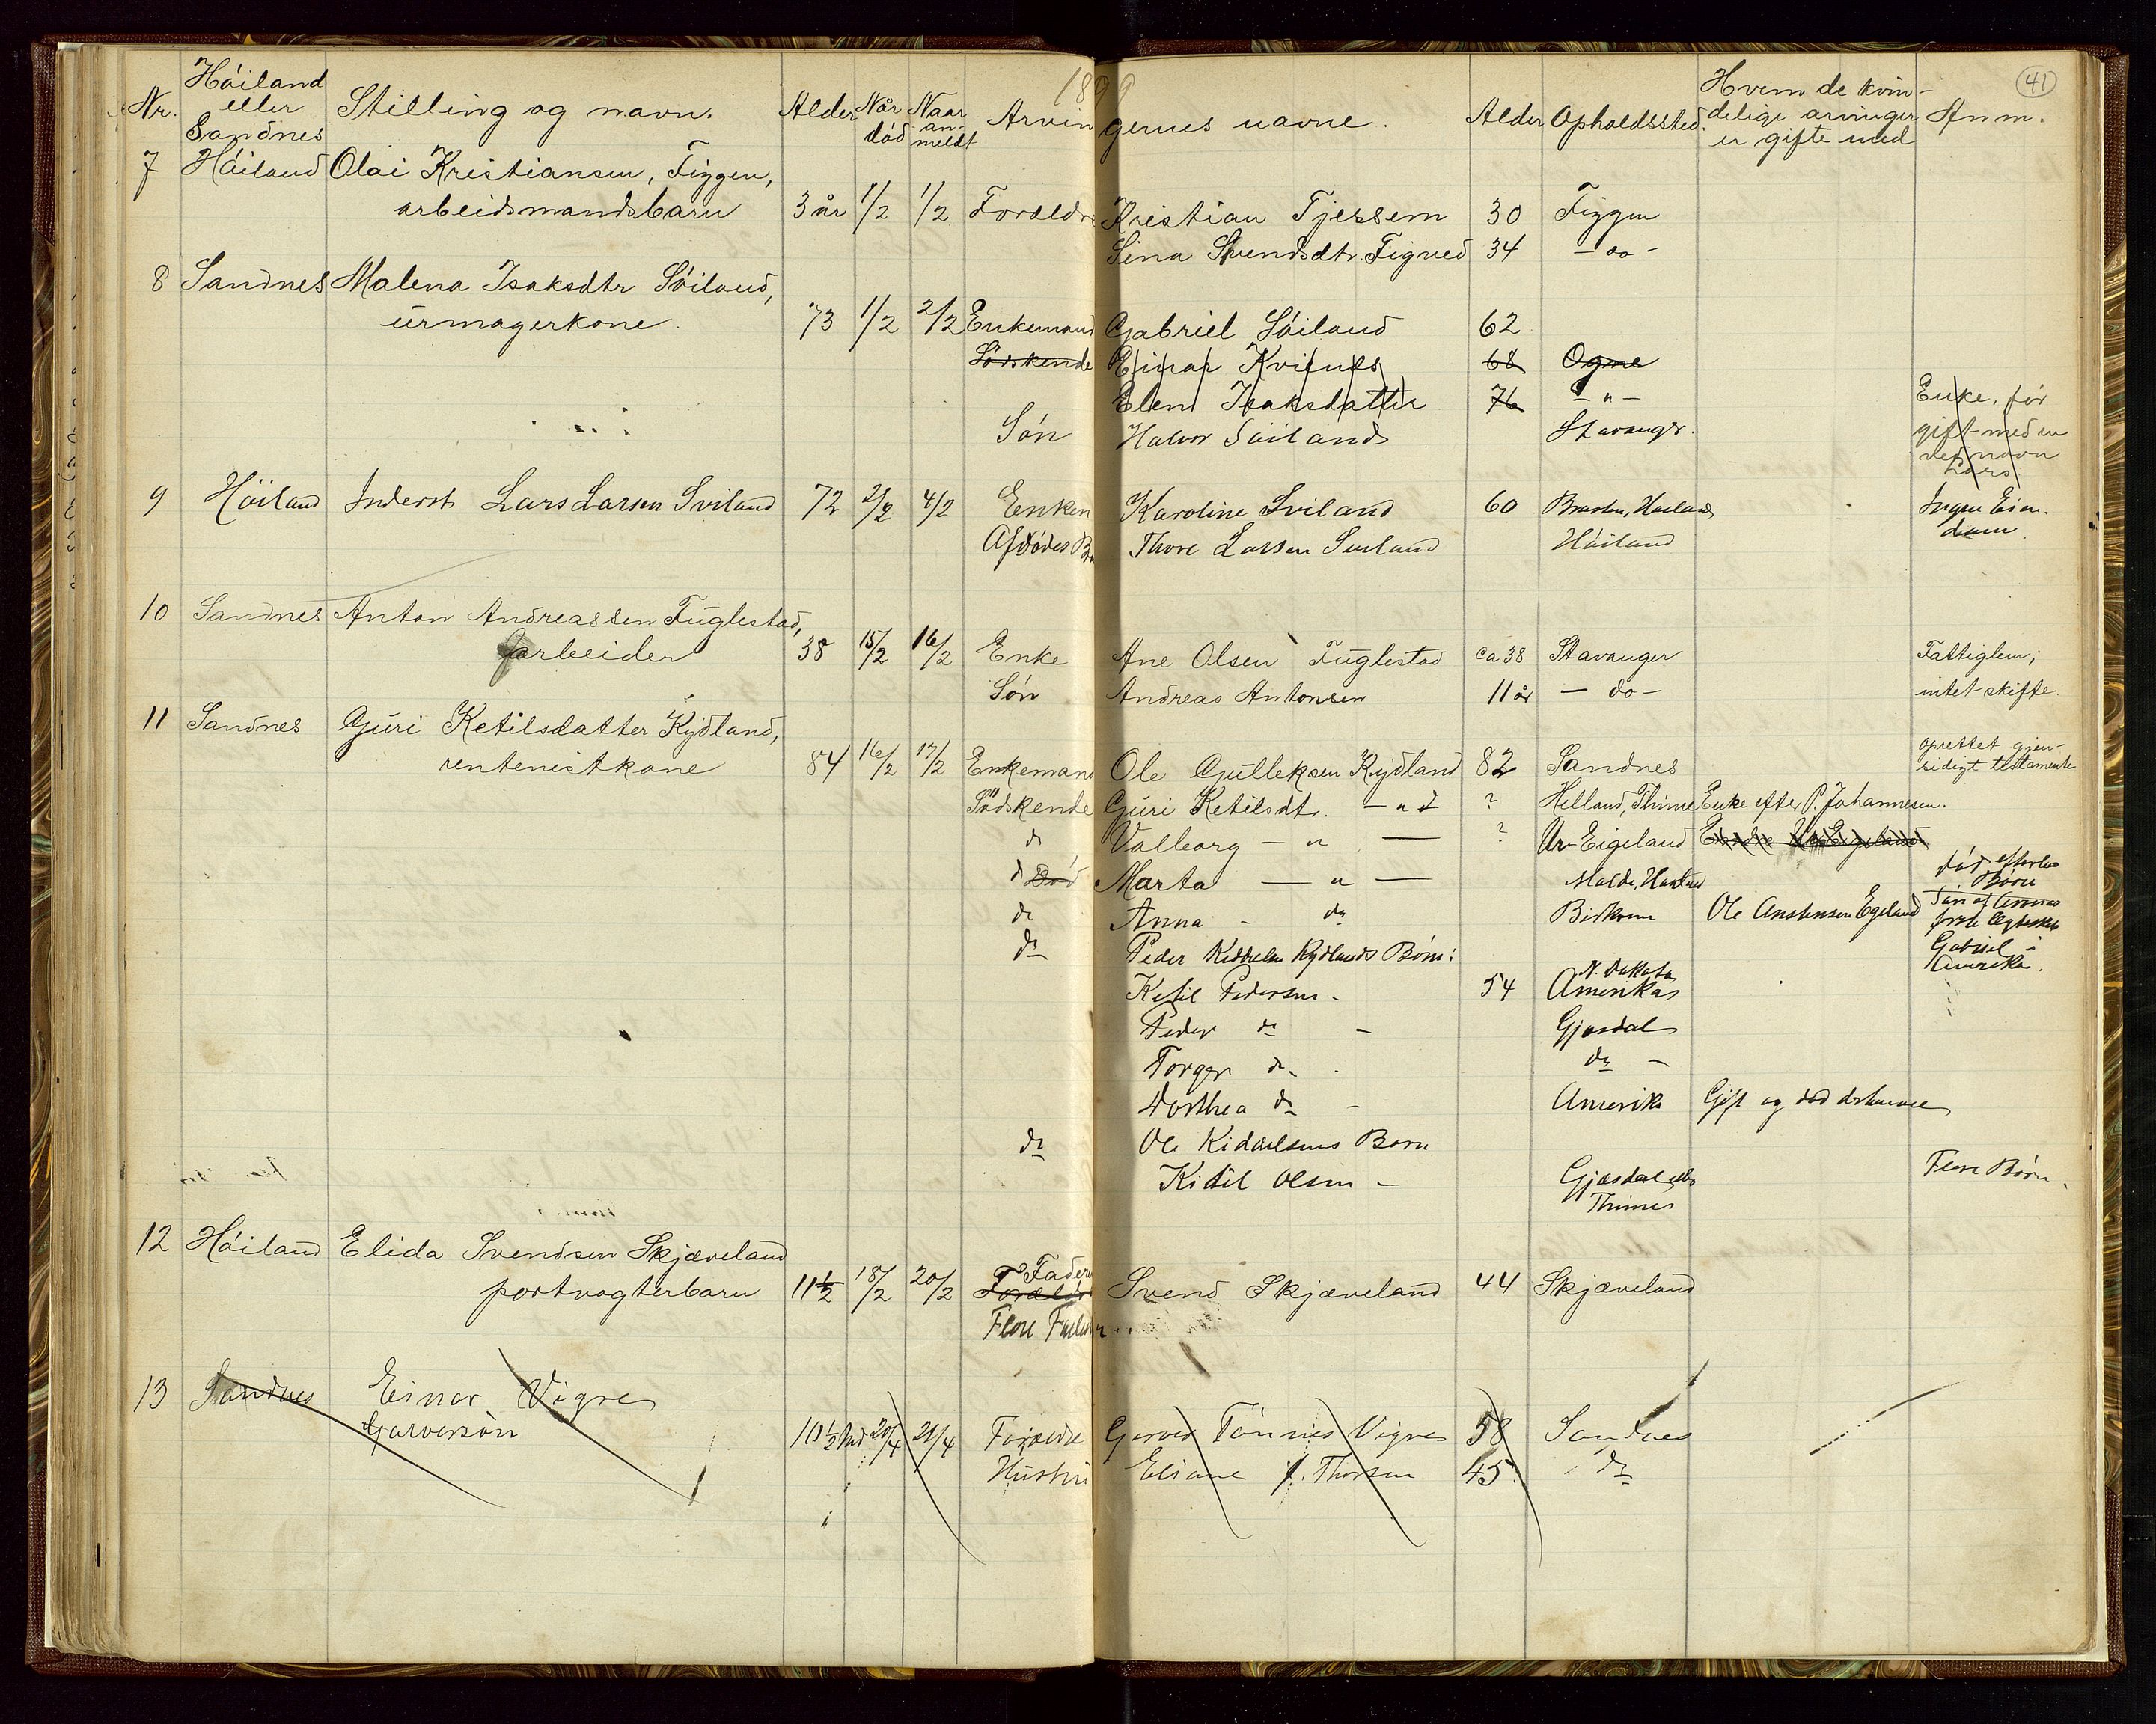 1899
41
Nr. Höiland eller Sandnes Stilling og navn. Alder Når död Naar anmeldt Arvingernes navne. Alder Opholdssted. Hvem de kvindelige arvinger er gifte med Anm.
7 Höiland Olai Kristiansen, Figgen,
arbeidsmandsbarn 3 år 1/2 1/2 Forældre Kristian Tjessem 30 Figgen
Sina Svendsdtr. Figved 34 - do -
8 Sandnes Malena Isaksdtr Söiland,
urmagerkone. 73 1/2 2/2 Enkemand Gabriel Söiland 62
Södskende Einar Kvifnes 68 Ogne
Elen Isaksdatter 76 - " - Enke, før
Sön Halvor Söiland Stavanger. gift med en
ved navn
Lars
9 Höiland Inderst Lars Larsen Sviland 72 2/2 4/2 Enken Karoline Sviland 60 Höiland Ingen Eien-
Afdödes Br Thore Larsen Sviland Höiland dom.
10 Sandnes Anton Andreassen Fuglestad,
arbeider 38 15/2 16/2 Enke Ane Olsen Fuglestad ca 38 Stavanger Fattiglem;
Sön Andreas Antonsen 11 år - do - intet skifte.
11 Sandnes Guri Ketilsdatter Kydland,
rentenistkone 84 16/2 17/2 Enkemand Ole Gulleksen Kydland 82 Sandnes oprettet gjen-
sidigt testamente
Södskende Guri Ketilsdtr. - " - ? Helland, Thime Enke efter P. Johannesen.
do Valborg - " - ? Ur-Eigeland
do Död Marta - " - Malde, död efterlad
Börn
do Anna - do Birkrem Ole Anstensen Egeland
do Peder Kiddelsen Kydlands Börn: Gabriel i
Amerika.
Ketil Pedersen - 54 N. Dakota Amerika
Peder do - Gjesdal
Torger do - do -
Dorthea do - Amerika Gift og död
do Ole Kiddelsens Börn
Kidil Olsen - Gjesdal eller Thime Flere Börn.
12 Höiland Elida Svendsen Skjæveland
portvagterbarn 11 1/2 18/2 20/2 Forældre Fader Svend Skjæveland 44 Skjæveland
Flere
13 Sandnes Einar Vigre
Garversön 10 1/2 20/4 21/4 Forældre Garver Tönnes Vigre 58 Sandnes
Hustru Eliane f. Thorsen 45. do